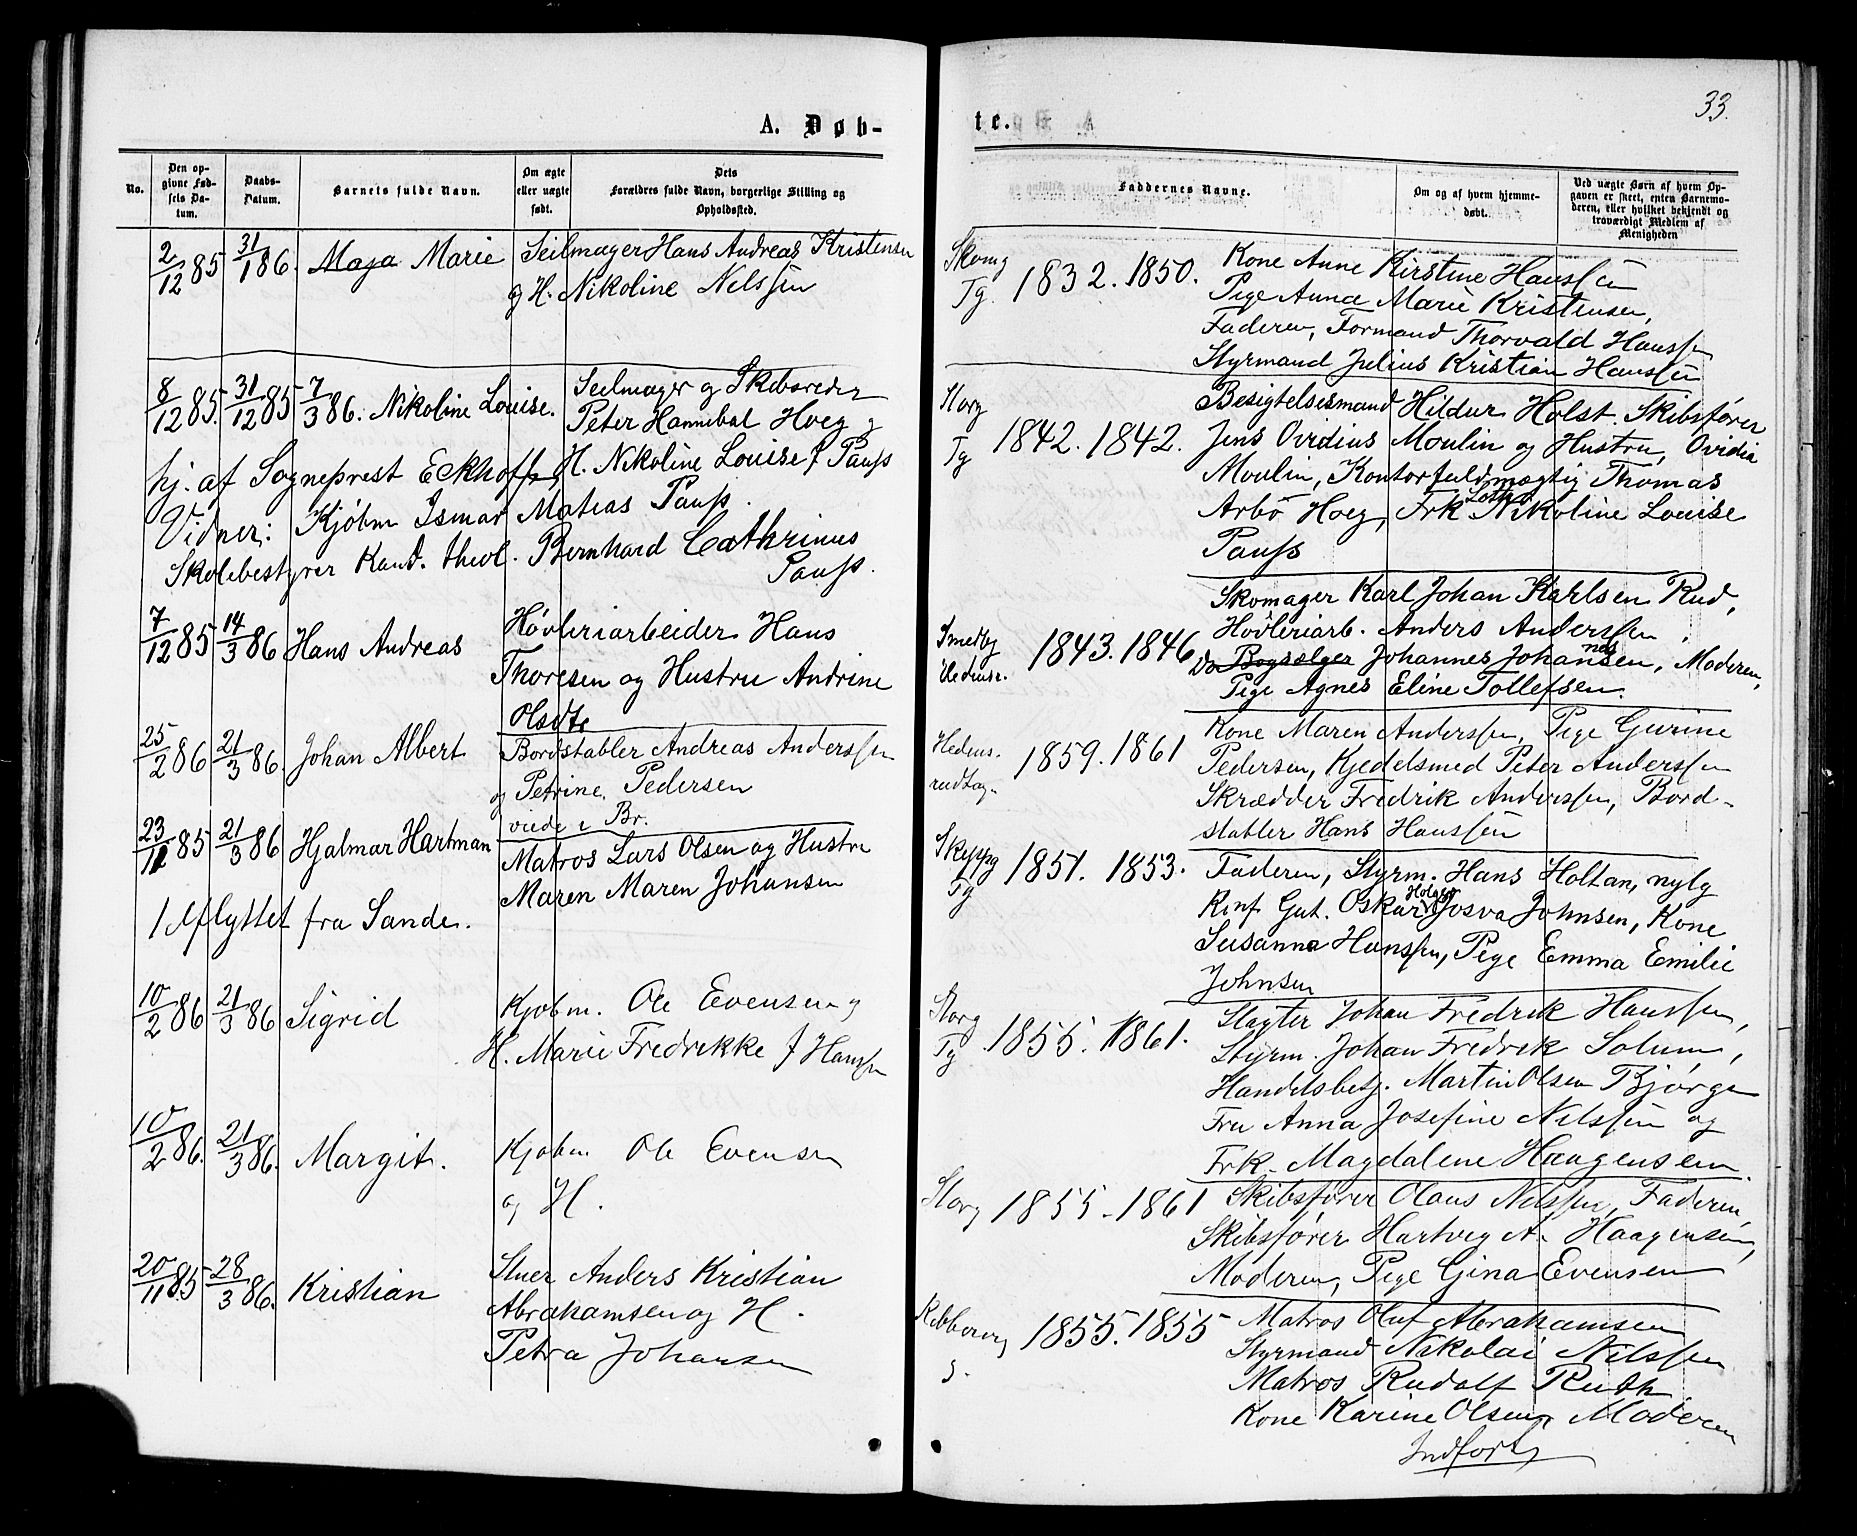 A. Døb-
No.
Den op-
givne Fød-
sels Da-
tum.
Daabs-
Datum.
Barnets fulde Navn.
Om ægte
eller uægte
født.
Dets
Forældres fulde Navn, borgerlige Stilling og
Opholdssted.
2/12 85 31/1 86. Maja Marie Seilmager Hans Andreas Kristensen
og H. Nikoline Nilssen
8/12 85. 31/12 85 7/3 86. Nikoline Louise. Seilmager og Skibsreder
Peter Hannibal Hoeg og
H. Nikoline Louise f Pauss
hj. af Sogneprest Eckhoff,
Vidner: Kjøbm Ismar Matias Pauss.
Skolebestyrer Kand. theol. Bernhard Cathrinus
Pauss.
7/12 85 14/3 86 Hans Andreas Høvleriarbeider Hans
Thoresen og Hustru Andrine
Olsdtr
25/2 86 21/3 86. Johan Albert Bordstabler Andreas Anderssen
og Petrine Pedersen
viede i Br.
23/11 85 21/3 86 Hjalmar Hartman Matros Lars Olsen og Hustru
Maren Maren Johansen
Iflyttet fra Sande.
10/2 86 21/3 86 Sigrid Kjøbm. Ole Evensen og
H. Marie Fredrikke f Hanssen
10/2 86. 21/3 86. Margit. Kjøbm Ole Evensen
og H.
20/11 85 28/3 86. Kristian Stuer Anders Kristian
Abrahamsen og H.
Petra Johansen
33.
te.
Faddernes Navne.
Om og af hvem hjemme-
døbt.
Ved uægte Børn af hvem Op-
gaven er skeet, enten Barnemo-
deren, eller hvilket bekjendt og
troværdigt Medlem af
Menigheden
Tg. 1832. 1850. Kone Anne Kirstine Hanssen
Pige Anna Marie Kristensen,
Faderen, Formand Thorvald Hanssen
Styrmand Julius Kristian Hanssen
Storg
Tg 1842. 1842. Besigtelsesmand Hildur Holst. Skibsfører
Jens Ovidius Moulin og Hustru, Ovidia
Moulin, Kontorfuldmægtig Thomas
Arbo Hoeg, Frk Nikoline Louise
Pauss
Smedby
1843. 1846 Skomager Karl Johan Karlsen Rud,
Høvleriarb. Anders Anderssen,
Bogsælger Johannes Johansen, Moderen,
Pige Agnes Eline Tollefsen.
Hedens-
1859. 1861 Kone Maren Anderssen, Pige Gurine
Pedersen, Kjedelsmed Peter Anderssen
Skrædder Fredrik Anderssen, Bord-
stabler Hans Hanssen
Tg 1851. 1853. Faderen, Styrm. Hans Holtan, nylg
Knf Gut. Oskar Holger Josva Johnsen, Kone
Susanna Hanssen, Pige Emma Emilie
Johnsen
Storg
Tg 1855. 1861. Slagter Johan Fredrik Hanssen,
Styrm. Johan Fredrik Solum,
Handelsbetj. Martin Olsen Bjørge
Fru Anna Josefine Nilssen og
Frk. Magdalene Haagensen
Storg 1855-1861 Skibsfører Olaus Nilssen, Faderen,
Skibsfører Hartvig A. Haagensen,
Moderen, Pige Gina Evensen
1855. 1855 Matros Oluf Abrahamsen
Styrmand Nikolai Nilssen
Matros Rudolf Ruth
Kone Karine Olsen, Moderen
Indført